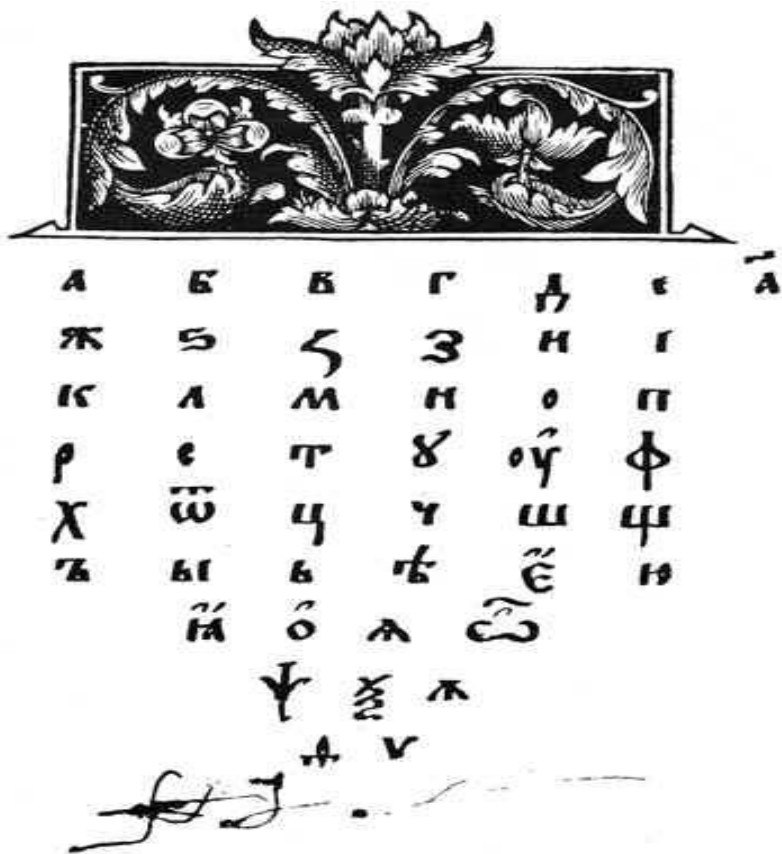 а б в г д є а҃
ж ѕ ꙁ з и і
к л м н о п
р с т ꙋ оу҆ ф
х ѿ ц ч ш щ
ъ ы ь ѣ є҆ ю
ꙗ҆ о҆ ѧ ѽ
ѱ ѯ ѫ
ѳ ѵ